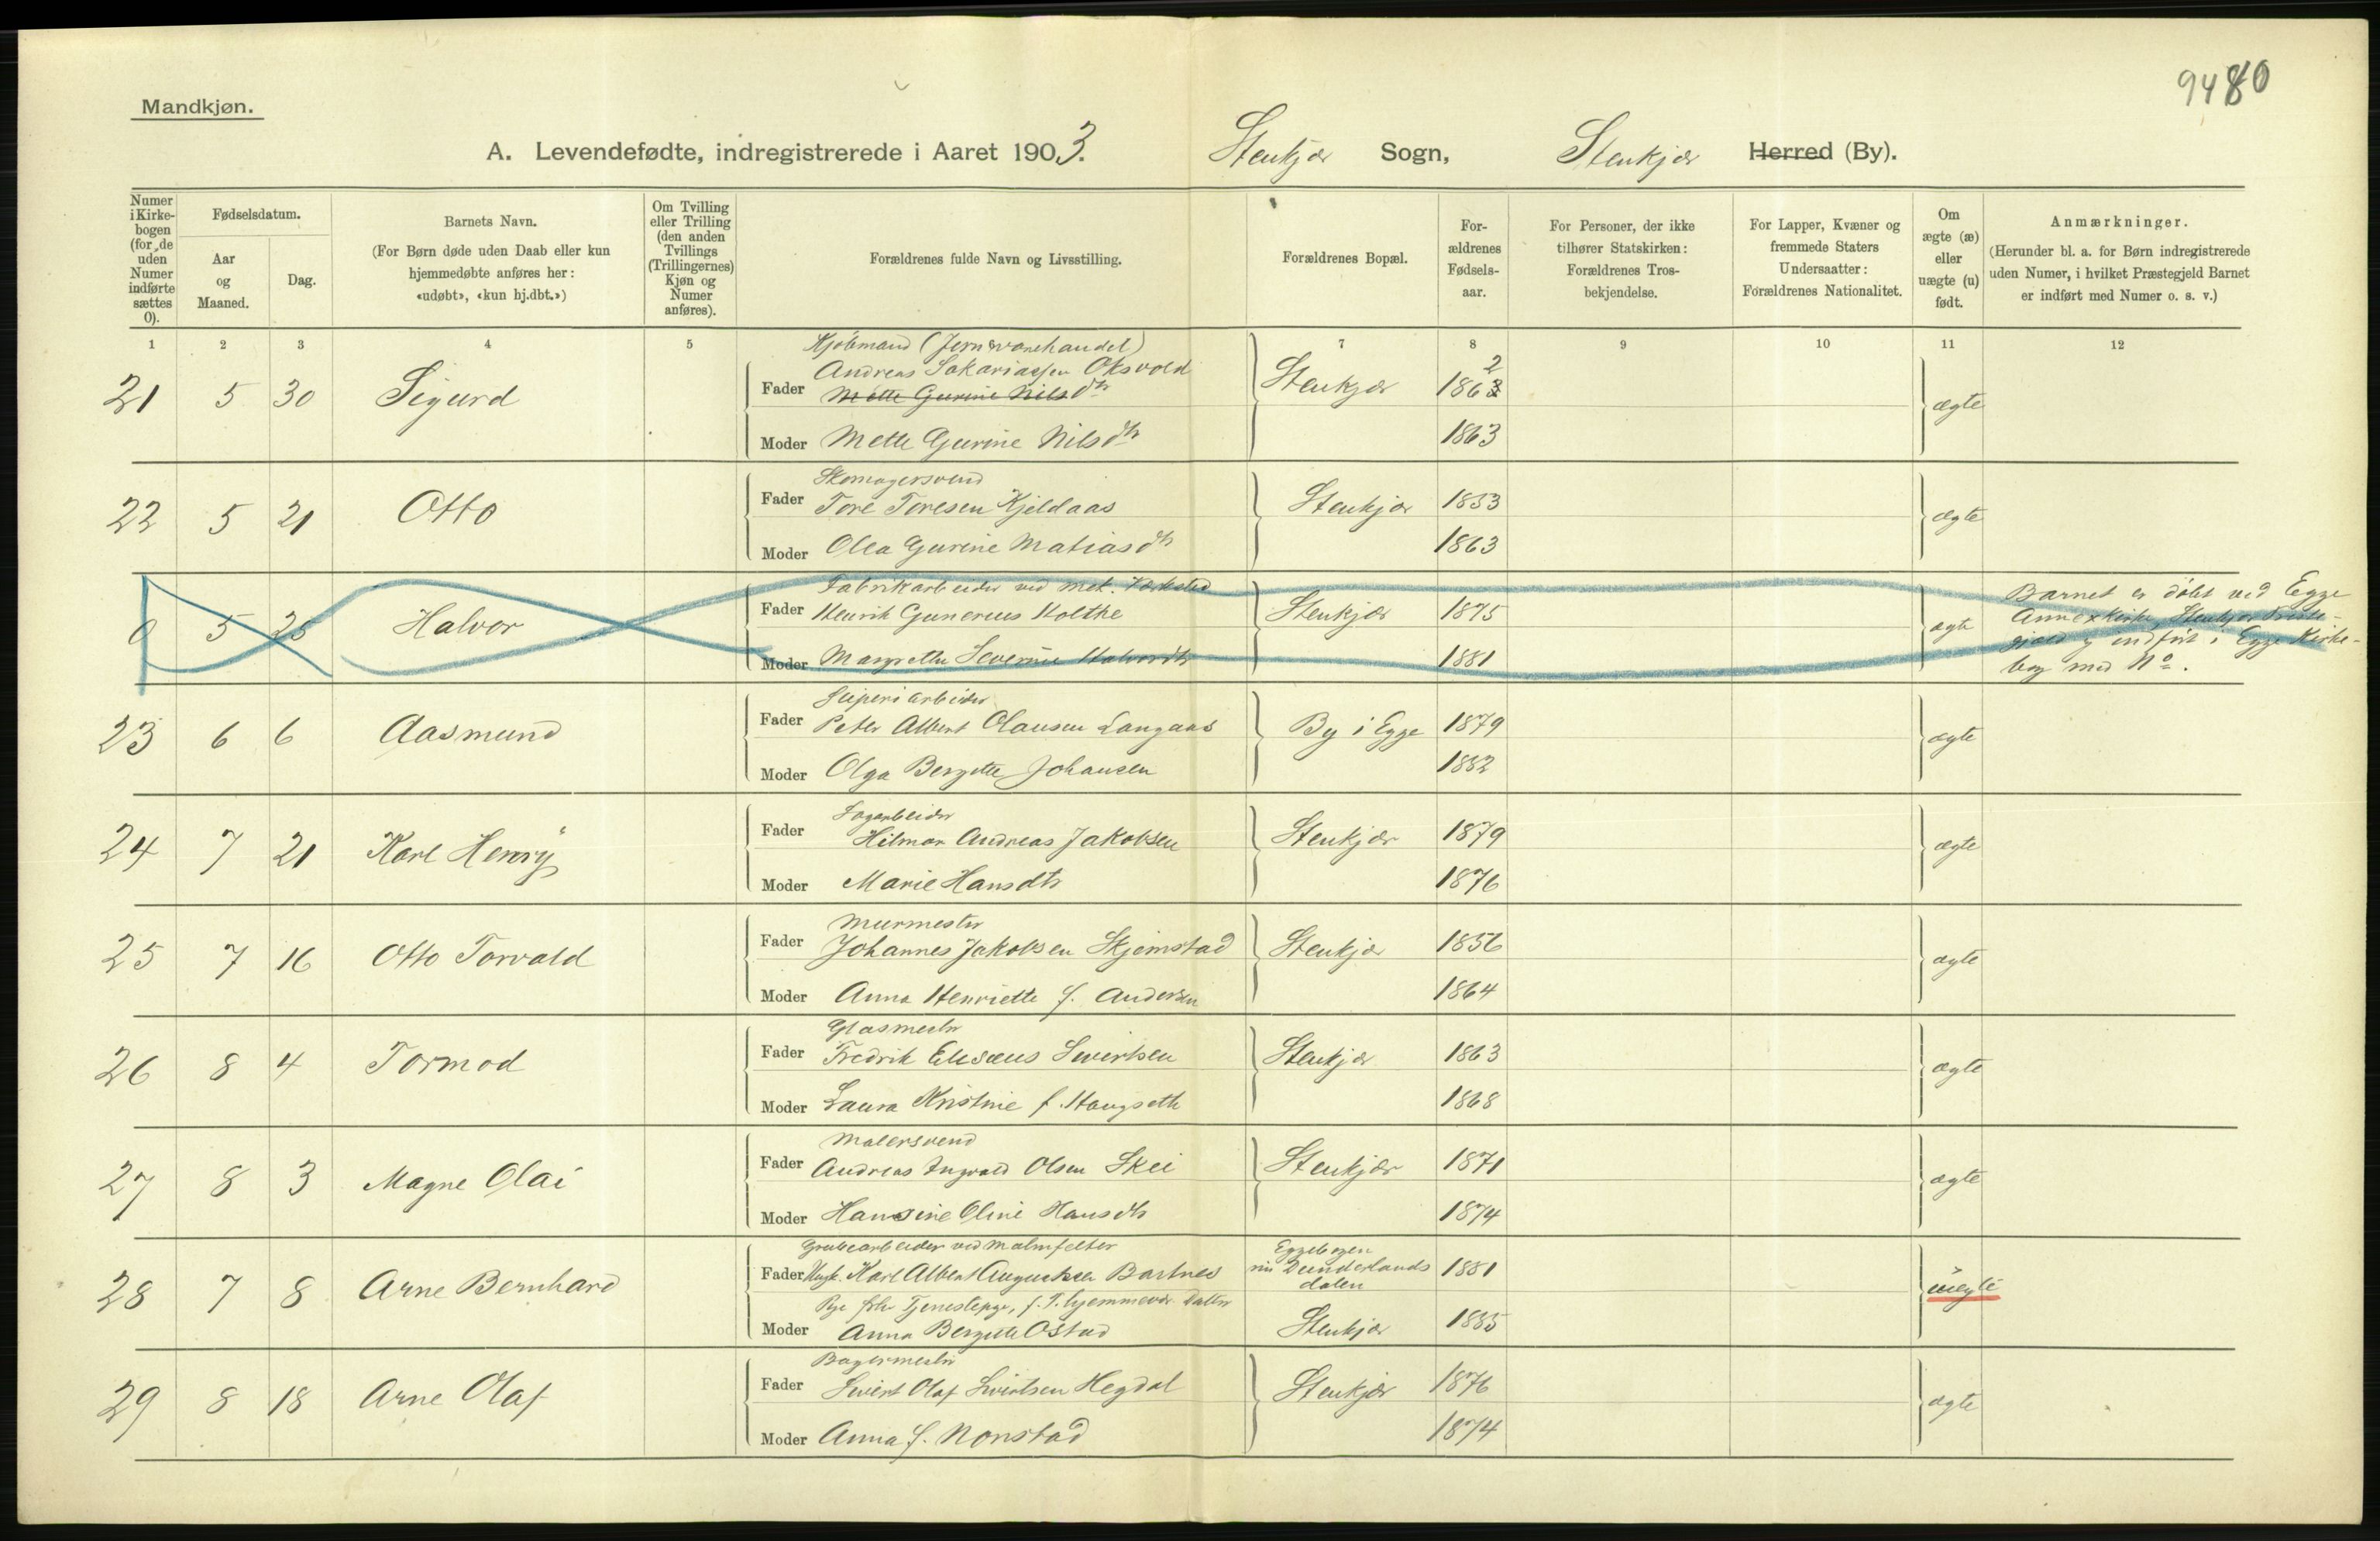 9480
Mandkjøn.
A. Levendefødte, indregistrerede i Aaret 1903. Stenkjær Sogn, Stenkjær Herred (By).
Numer i Kirkebogen (for de uden Numer indførte sættes 0).
Fødselsdatum.
Aar og Maaned.
Dag.
Barnets Navn.
(For Børn døde uden Daab eller kun hjemmedøbte anføres her: «udøbt», «kun hj.dbt.»)
Om Tvilling eller Trilling (den anden Tvillings (Trillingernes) Kjøn og Numer anføres).
Forældrenes fulde Navn og Livsstilling.
Forældrenes Bopæl.
Forældrenes Fødselsaar.
For Personer, der ikke tilhører Statskirken: Forældrenes Trosbekjendelse.
For Lapper, Kvæner og fremmede Staters Undersaatter: Forældrenes Nationalitet.
Om ægte (æ) eller uægte (u) født.
Anmærkninger.
(Herunder bl. a. for Børn indregistrerede uden Numer, i hvilket Præstegjeld Barnet er indført med Numer o. s. v.)
1 2 3 4 5 7 8 9 10 11 12
Kjøbmand (Jernvarehandel)
21 5 30 Sigurd Fader Andreas Sakariassen Oksvold Stenkjær 1862 ægte
Mette Gurine Nilsdtr
Moder Mette Gurine Nilsdtr 1863
Skomagersvend
22 5 21 Otto Fader Tore Toresen Kjeldaas Stenkjær 1853 ægte
Moder Olea Gurine Matiasdtr 1863
Fabrikarbeider ved mek. Værksted
0 5 25 Halvor Fader Henrik Gunerius Holthe Stenkjær 1875 ægte
Moder Margrethe Severine Halvordtr 1881
Barnet er døbt ved Egge
Annexkirke, Stenkjær Præste-
gjæld og indført i Egge Kirke-
bog med No.
Sliperiarbeider
23 6 6 Aasmund Fader Peter Albert Olausen Langaas By i Egge 1879 ægte
Moder Olga Bergitte Johansen 1882
Sagarbeider
24 7 21 Karl Henry Fader Hilmar Andreas Jakobsen Stenkjær 1879 ægte
Moder Marie Hansdtr 1876
Murmester
25 7 16 Otto Torvald Fader Johannes Jakobsen Skjemstad Stenkjær 1856 ægte
Moder Anna Henriette f. Andersen 1864
Glasmester
26 8 4 Tormod Fader Fredrik Elisæus Sivertsen Stenkjær 1863 ægte
Moder Laura Kristine f. Haugseth 1868
Malersvend
27 8 3 Magne Olai Fader Andreas Ingvald Olsen Skei Stenkjær 1871 ægte
Moder Hansine Oline Hansdtr 1874
Grubearbeider ved Malmfelter
28 7 8 Arne Bernhard Fader Ungk. Karl Albert Augustsen Bartnes Eggebogen nu Dunderlandsdalen 1881 uægte
Pige før Tjenestepige, f. T. hjemmevær. Datter
Moder Anna Bergitte Østad Stenkjær 1885
Bagermester
29 8 18 Arne Olaf Fader Sivert Olaf Sivertsen Hegdal Stenkjær 1876 ægte
Moder Anna f. Nonstad 1874